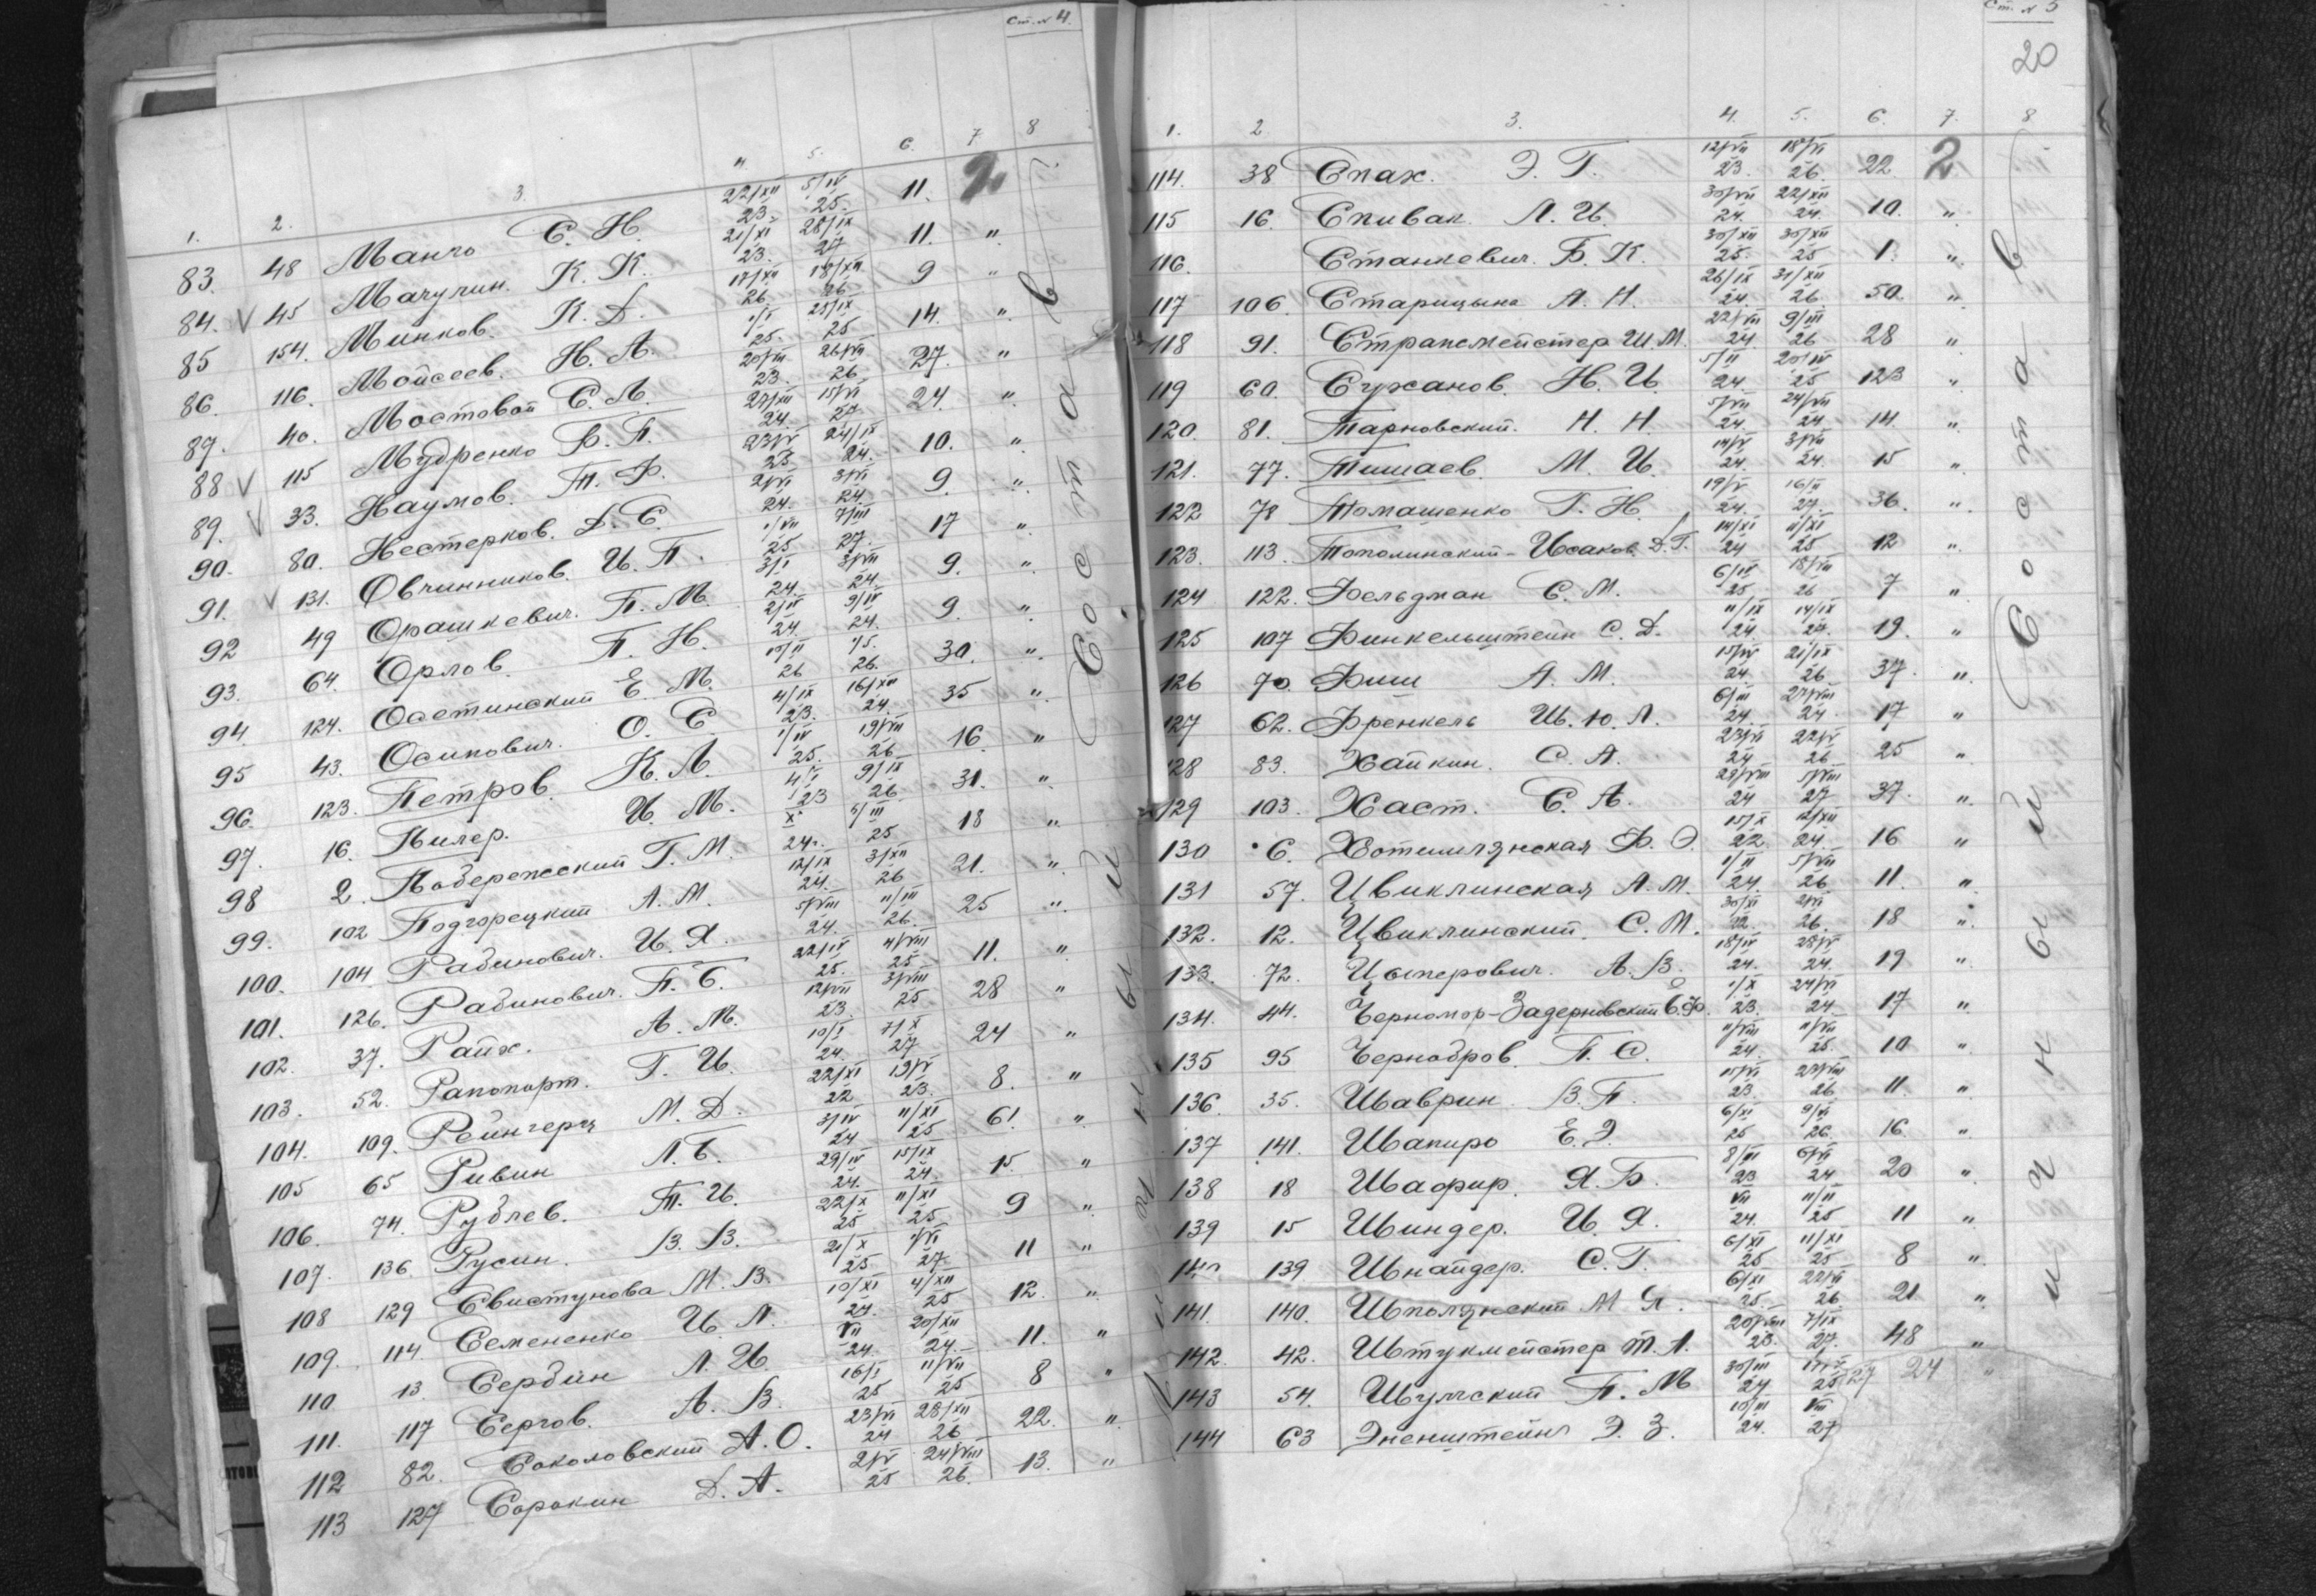 Ст. № 4.
1. 2. 3. 4. 5. 6. 7 8
83. 48 Манчо С. Н. 22/XII 23. 5/IV 25. 11. 2
84. V 45 Мачулин. К. К. 21/XI 23. 28/IX 27 11. "
85 154. Минков. К. Д. 17/XII 26. 18/XII 26 9 "
86. 116. Мойсеев. Н. А. 1/I 25. 25/IX 25 14. "
87. 40. Мостовой С. М. 20/VIII 23. 26/VIII 26 27. "
88 V 115 Мудренко В. П. 27/XII 24. 15/VI 27 24. "
89. V 33. Наумов. Т. Ф. 23/V 23 24/IX 24. 10. "
90. 80. Нестерков. Д. С. 2/VI 24. 3/VI 24 9. "
91. V 131. Овчинников. И. П. 1/VII 25 7/III 27. 17 "
92 49 Орашкевич. П. М. 3/I 24. 3/VII 24. 9. "
93. 64. Орлов. П. Н. 2/IV 24. 9/IV 24. 9. "
94. 124. Осетинский Е. М. 10/II 26 26. 30. "
95 43. Осипович. О. С. 4/IX 23. 16/XII 24. 35 "
96. 123. Петров. К. А. 1/IV 25. 19/VIII 26 16. "
97. 16. Пилер. И. М. 4/I 23 9/IX 26 31. "
98 2. Побережский Г. М. X 24г. 5/III 25 18 "
99. 102 Подгорецкий А. М. 12/IX 24. 3/XII 26 21. "
100. 104 Рабинович. И. Я. 5/VIII 24. 11/III 26. 25 "
101. 126. Рабинович. П. Б. 22/IV 25. 4/VIII 25 11. "
102. 37. Райх. А. М. 12/VII 23. 3/VIII 25 28 "
103. 52. Рапопорт. Г. И. 10/I 24. 7/X 27 24 "
104. 109. Рейнгерц М. Д. 22/XI 22 19/V 23. 8. "
105 65 Ривин Л. Б. 3/IV 24 11/XI 25 61. "
106. 74. Рублев. Т. И. 29/IV 24. 15/IX 24. 15. "
107. 136. Русин. В. В. 22/X 25 11/XI 25 9 "
108 129 Свистунова М. В. 21/X 25 1/VI 27. 11 "
109. 114. Семененко И. Л. 10/XI 24. 4/XII 25 12. "
110 13. Сербин Л. И. VII 24. 20/XII 24. 11. "
111. 117 Сергов. А. В. 16/I 25 11/VII 25 8 "
112 82. Соколовский А. О. 23/VI 24 28/XII 26 22. "
113 127 Сорокин Д. А. 2/V 25 24/VIII 26. 13. "
Состав
Ст. № 5
20
1. 2 3. 4. 5. 6. 7. 8
114. 38 Спах. Э. Г. 12/VII 23. 18/VI 26. 22 2
115 16. Спивак Л. И. 30/VII 24. 22/XII 24. 10. "
116. Станкевич. Б. К. 30/XII 25. 30/XII 25 1. "
117 106. Старицына А. Н. 26/IX 24. 31/XII 26. 50. "
118 91. Страпсмейстер Ш. М. 22/VIII 24. 9/III 26 28 "
119 60. Сужанов. Н. И. 5/II 24. 20/IV 25 123 "
120. 81. Тарновский. Н. Н. 5/VII 24. 24/VII 24 14. "
121. 77. Тишаев. М. И. 14/V 24. 3/VII 24. 15 "
122 78 Томашенко Г. Н. 19/V 24. 16/II 27. 36. "
123. 113. Тополинский-Исаков Д. Г. 14/XI 24 11/XI 25 12 "
124 122. Фельдман С. М. 6/IV 25 18/VIII 26 7 "
125 107 Финкельштейн С. Д. 11/IX 24. 14/IX 27. 19. "
126 70. Фиш А. М. 15/IV 24. 21/IX 26 37. "
127 62. Френкель Ш. Ю. Л. 6/III 24. 27/VIII 24. 17 "
128 83. Хайкин. С. А. 23/VI 24 22/V 26 25 "
129 103. Хаст. С. А. 29/VIII 24 5/VIII 27 37. "
130 6. Хотимлянская Ф. Э. 15/X 22 12/XII 24. 16 "
131 57. Цвиклинская А. М. 1/II 24. 5/VII 26 11. "
132. 12. Цвиклинский. С. М. 30/XI 22. 2/VI 26. 18 "
133. 72. Цыперович. А. В. 18/IV 24. 28/V 24. 19 "
134. 44. Черномор-Задерновский С. Ф. 1/X 23. 24/VI 24 17 "
135 95 Чернобров. П. С. 11/VIII 24. 11/VII 25. 10 "
136. 35. Шаврин. В. П. 15/VI 23. 27/VIII 26 11. "
137 141. Шапиро Е. Э. 6/XI 25 9/VI 26. 16. "
138 18 Шафир. Я. Б. 8/III 23 6/VI 24 20 "
139 15 Шиндер. И. Я. VII 24. 11/II 25 11 "
140 139 Шнайдер. С. Г. 6/XI 25 11/XI 25 8 "
141. 140. Шполянский М. Я. 6/XI 25. 22/VI 26 21 "
142. 42. Штукмейстер Т. Л. 20/VIII 23. 7/IX 27. 48 "
143 54. Шумский П. М 30/III 24 25 27 24 "
144 63 Эненштейн Э. З. 10/III 24. VIII 27
Состав